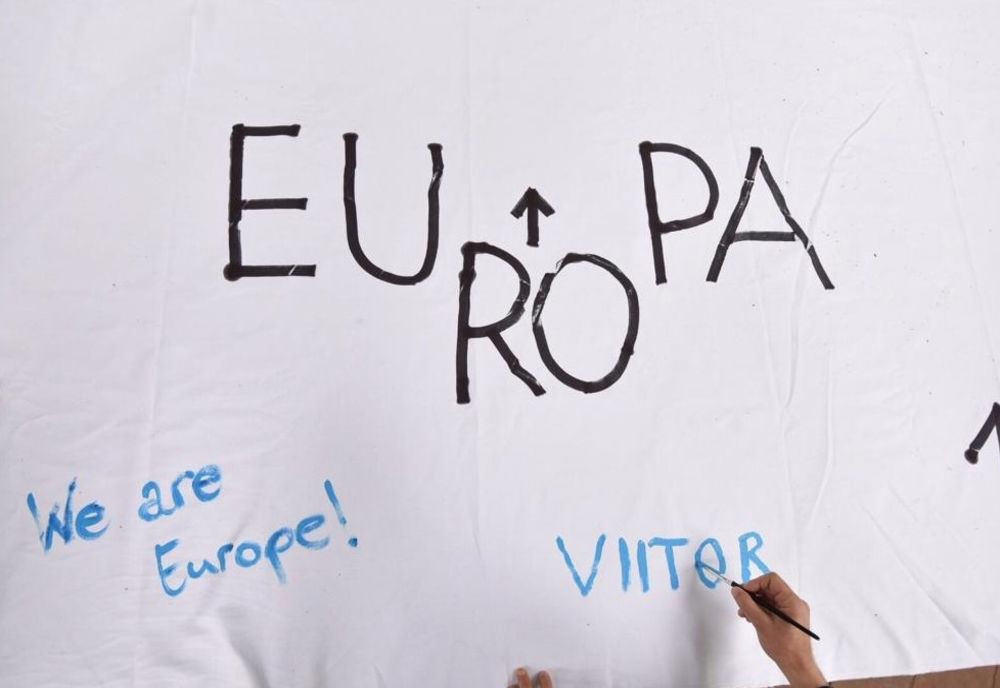 EU PA
↑
RO
We are
Europe!
VIITOR